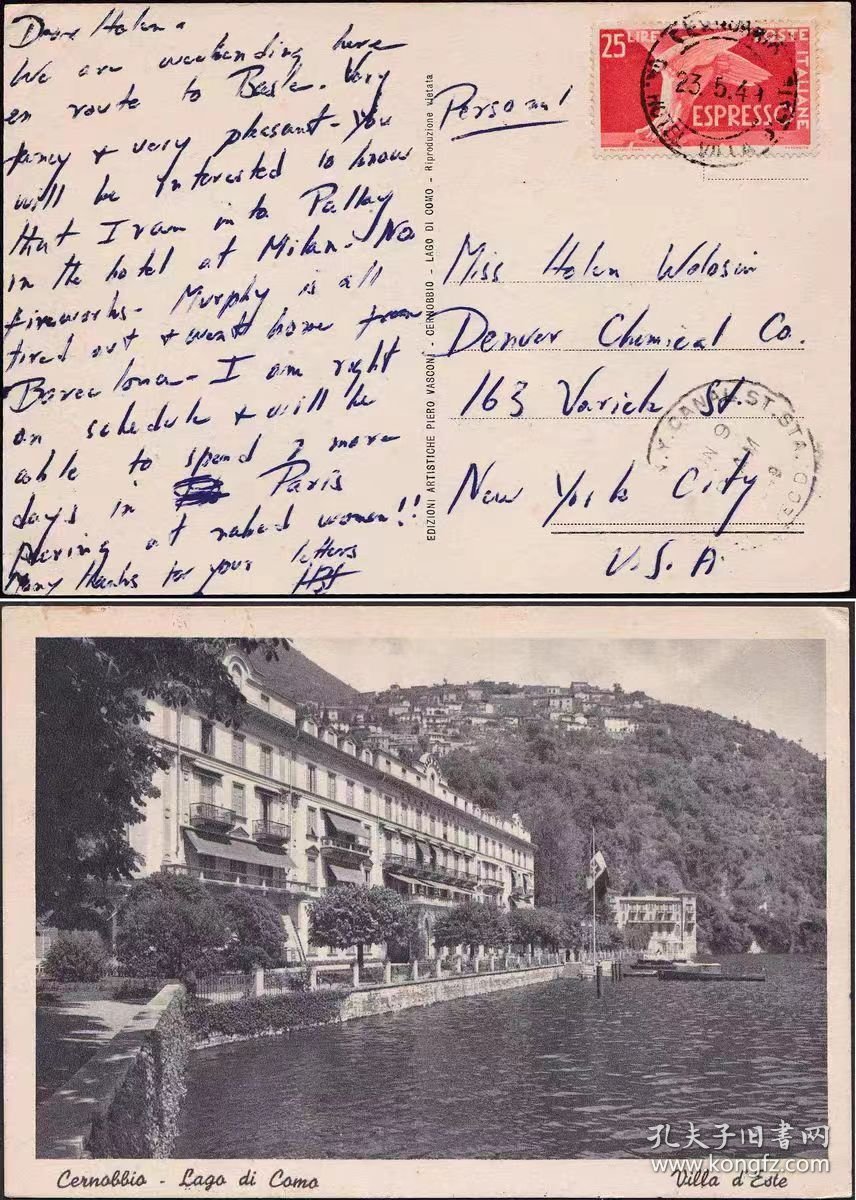 Dear Helen -
We are weekending here
en route to Basle. Very
fancy & very pleasant - You
will be interested to know
that I ran in to Pallay
in the hotel at Milan - No
fireworks - Murphy is all
tired out & went home from
Barcelona - I am right
on schedule & will be
able to spend 2 more
days in Paris
peering at naked women!!
Many thanks for your letters
EDIZIONI ARTISTICHE PIERO VASCONI - CERNOBBIO - LAGO DI COMO - Riproduzione vietata
Personal
25 LIRE POSTE ITALIANE
ESPRESSO
23.5.49
HOTEL VILLA D'ESTE
Miss Helen Wolosin
Denver Chemical Co.
163 Varick St
New York City
U.S.A.
N.Y. CANAL ST. STA.
REC'D.
Cernobbio - Lago di Como
Villa d'Este
孔夫子旧书网
www.kongfz.com